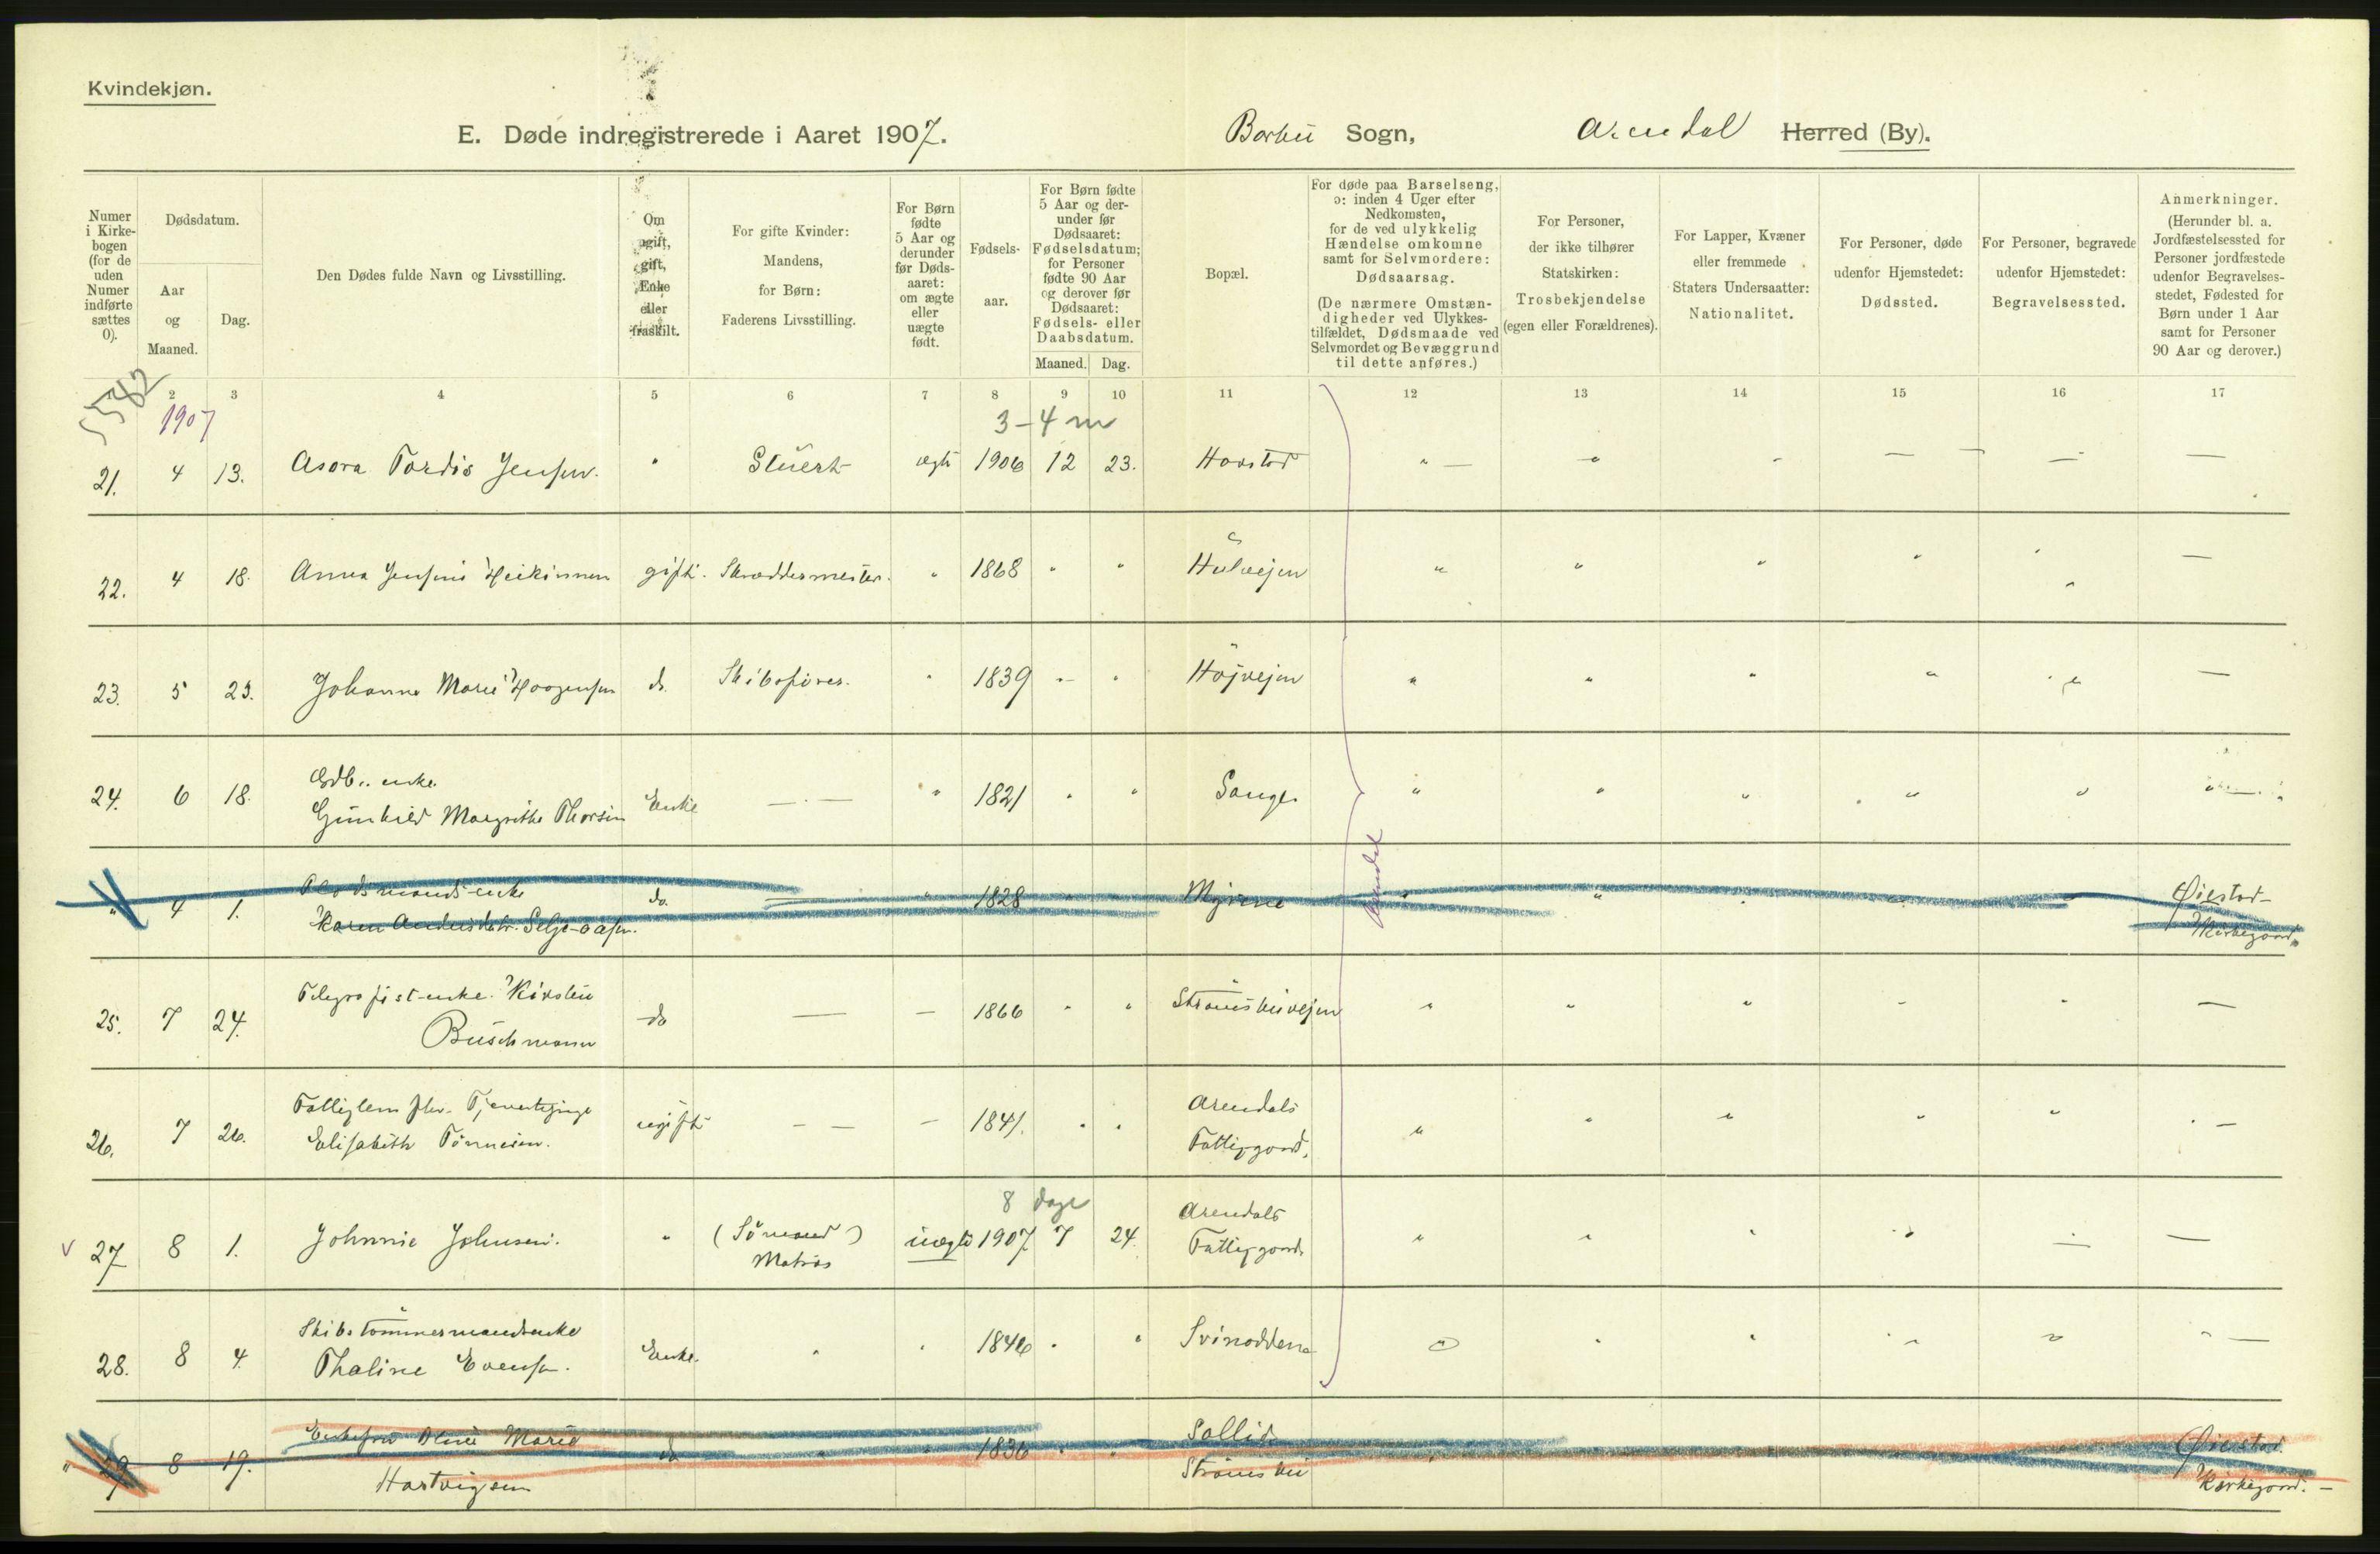 Kvindekjøn.
E. Døde indregistrerede i Aaret 1907.
Barbu Sogn, Arendal Herred (By).
Numer i Kirkebogen (for de uden Numer indførte sættes 0).
Dødsdatum.
Aar og Maaned.
Dag.
Den Dødes fulde Navn og Livsstilling.
Om ugift, gift, Enke eller fraskilt.
For gifte Kvinder: Mandens, for Børn: Faderens Livsstilling.
For Børn fødte 5 Aar og derunder før Dødsaaret: om ægte eller uægte født.
Fødselsaar.
For Børn fødte 5 Aar og derunder før Dødsaaret: Fødselsdatum; for Personer fødte 90 Aar og derover før Dødsaaret: Fødsels- eller Daabsdatum.
Maaned. Dag.
Bopæl.
For døde paa Barselseng, ɔ: inden 4 Uger efter Nedkomsten, for de ved ulykkelig Hændelse omkomne samt for Selvmordere: Dødsaarsag.
(De nærmere Omstændigheder ved Ulykkestilfældet, Dødsmaade ved Selvmordet og Bevæggrund til dette anføres.)
For Personer, der ikke tilhører Statskirken: Trosbekjendelse (egen eller Forældrenes).
For Lapper, Kvæner eller fremmede Staters Undersaatter: Nationalitet.
For Personer, døde udenfor Hjemstedet: Dødssted.
For Personer, begravede udenfor Hjemstedet: Begravelsessted.
Anmerkninger.
(Herunder bl. a. Jordfæstelsessted for Personer jordfæstede udenfor Begravelsesstedet, Fødested for Børn under 1 Aar samt for Personer 90 Aar og derover.)
2 3 4 5 6 7 8 9 10 11 12 13 14 15 16 17
5582
1907
3-4 m
21. 4 13. Asora Tordis Jensen. " Stuert ægte 1906 12 23. Harstad " — " " — — —
22. 4 18. Anna Jensine Heikinnen gift. Skræddermester. " 1868 " " Hulvejen " " " " " —
23. 5 23. Johanne Marie Haagensen do. Skibsfører. " 1839 " " Højvejen " " " " " —
24. 6 18. Gdb. enke. Gunhild Margrithe Thorsen Enke — " 1821 " " Sange. " " " " "
Arendal
" 4 1. Plodsmands enke Karen Andersdatr. Selje-aasen. do. — " 1828 " " Myrene " " " " " Øiestad Kirkegaard.
25. 7 24. Telegrafist-enke. Kirsten Buschmann do — — 1866 " " Strømsbuvejen " " " " " —
26. 7 26. Fattiglem fhv. Tjenestepige Elisabeth Tønnesen. ugift — — — 1841. " " Arendals Fattiggaard. " " " " " —
8 dage
v 27 8 1. Johnnie Johnsen. " (Sømand) Matros uægte 1907 7 24. Arendals Fattiggaard. " " " " — —
28. 8 4. Skibstømmermandsenke Thaline Evensen. Enke. " " 1846 " " Svinodden " " " " " —
" 29 8 19. Enkefru Oline Marie Hartvigsen do " " 1836 " " Sollid Strømsbu Øiestad Kirkegaard. —